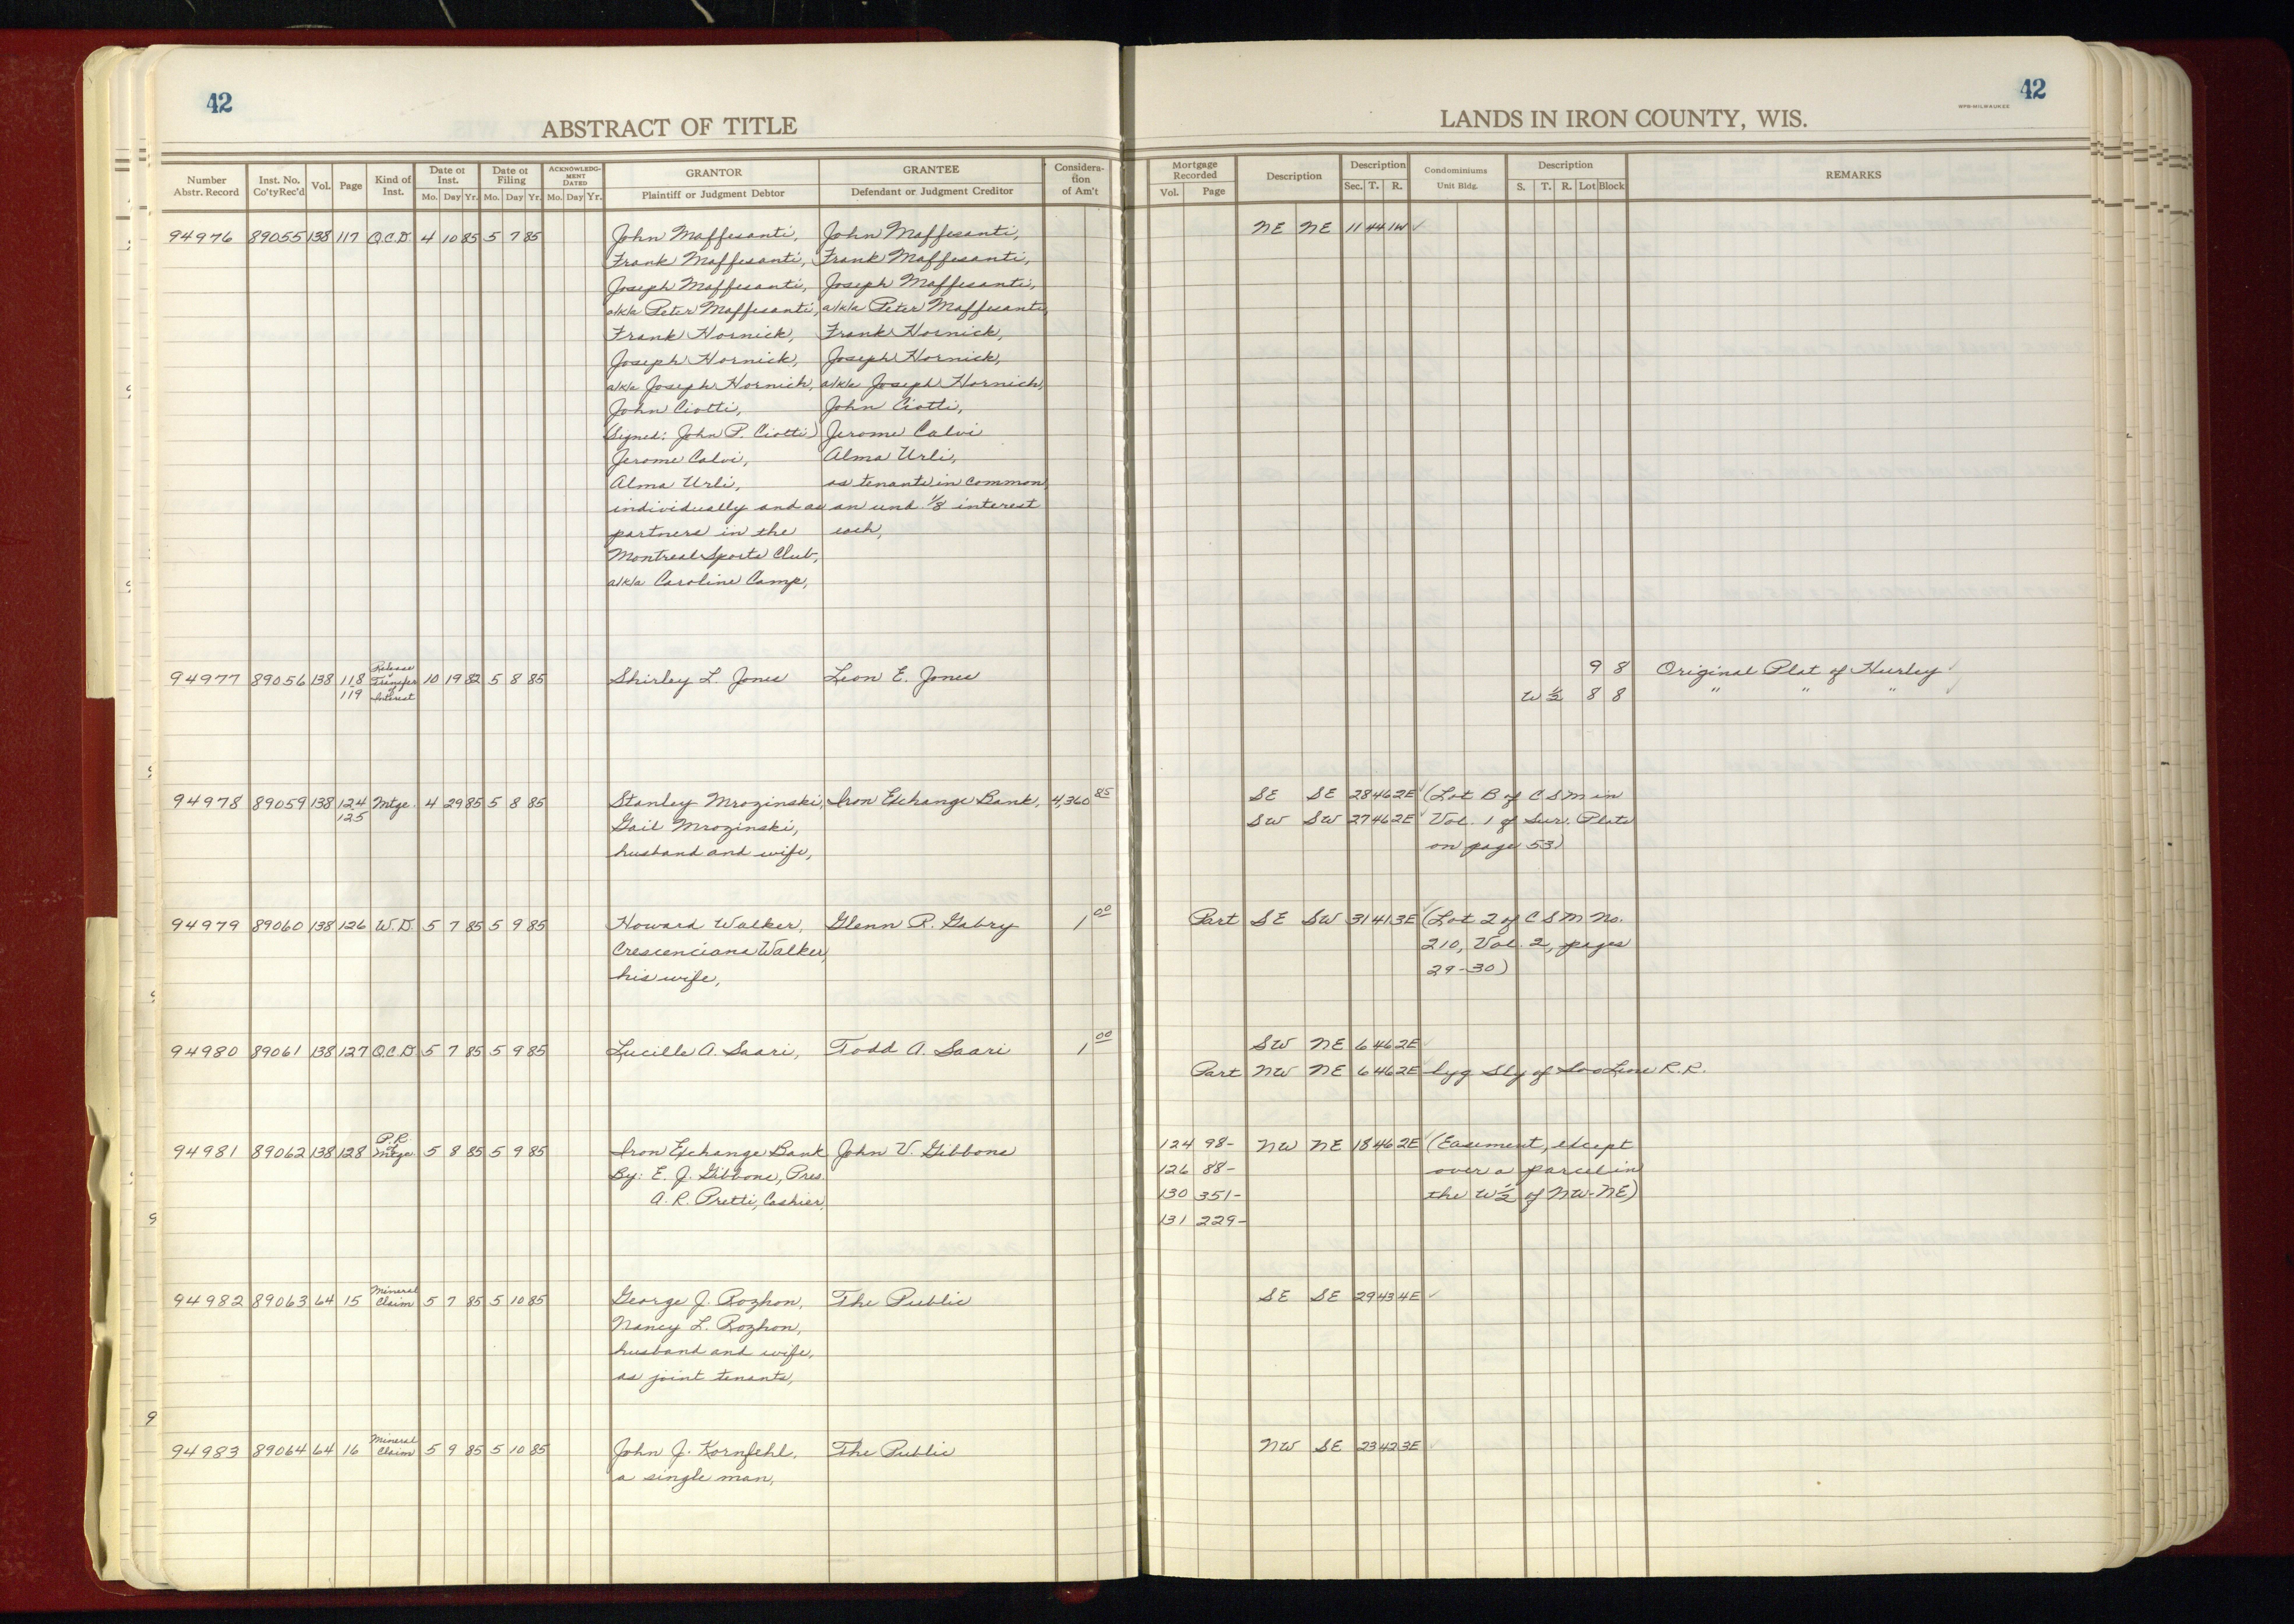 42
ABSTRACT OF TITLE
Number Abstr. Record | Inst. No. Co'ty Rec'd | Vol. | Page | Kind of Inst. | Date of Inst. Mo. Day Yr. | Date of Filing Mo. Day Yr. | ACKNOWLEDGMENT DATED Mo. Day Yr. | GRANTOR Plaintiff or Judgment Debtor | GRANTEE Defendant or Judgment Creditor | Consideration of Am't
94976 89055 138 117 Q.C.D. 4 10 85 5 7 85 John Maffesanti, John Maffesanti,
Frank Maffesanti, Frank Maffesanti,
Joseph Maffesanti, Joseph Maffesanti,
a/k/a Peter Maffesanti, a/k/a Peter Maffesanti,
Frank Hornick, Frank Hornick,
Joseph Hornick, Joseph Hornick,
a/k/a Joseph Hornich, a/k/a Joseph Hornich,
John Ciotti, John Ciotti,
(Signed: John P. Ciotti) Jerome Calvi
Jerome Calvi, Alma Urli,
Alma Urli, as tenants in common
individually and as an und. 1/8 interest
partners in the each,
Montreal Sports Club,
a/k/a Caroline Camp,
94977 89056 138 118 119 Release & Transfer of Interest 10 19 82 5 8 85 Shirley L. Jones Leon E. Jones
94978 89059 138 124 125 Mtge. 4 29 85 5 8 85 Stanley Mrozinski, Iron Exchange Bank, 4,360 85
Gail Mrozinski,
husband and wife,
94979 89060 138 126 W.D. 5 7 85 5 9 85 Howard Walker, Glenn R. Gabry 1 00
Crescenciana Walker,
his wife,
94980 89061 138 127 Q.C.D. 5 7 85 5 9 85 Lucille A. Saari, Todd A. Saari 1 00
94981 89062 138 128 P.R. of Mtge. 5 8 85 5 9 85 Iron Exchange Bank John V. Gibbons
By: E. J. Gibbons, Pres.
A. R. Pretti, Cashier,
94982 89063 64 15 Mineral Claim 5 7 85 5 10 85 George J. Rozhon, The Public
Nancy L. Rozhon,
husband and wife,
as joint tenants,
94983 89064 64 16 Mineral Claim 5 9 85 5 10 85 John J. Kornfehl, The Public
a single man,
42
WPB-MILWAUKEE
LANDS IN IRON COUNTY, WIS.
Mortgage Recorded Vol. Page | Description | Description Sec. T. R. | Condominiums Unit Bldg. | Description S. T. R. Lot Block | REMARKS
NE NE 11 44 1W ✓
9 8 Original Plat of Hurley ✓
W 1/2 8 8 " " " ✓
SE SE 28 46 2E ✓ (Lot B of CSM in
SW SW 27 46 2E ✓ Vol. 1 of Sur. Plats
on page 53)
Part SE SW 31 41 3E ✓ (Lot 2 of CSM No.
210, Vol. 2, pages
29-30)
SW NE 6 46 2E ✓
Part NW NE 6 46 2E lyg Sly of Soo Line R.R.
124 98- NW NE 18 46 2E ✓ (Easement, except
126 88- over a parcel in
130 351- the W 1/2 of NW-NE)
131 229-
SE SE 29 43 4E ✓
NW SE 23 42 3E ✓